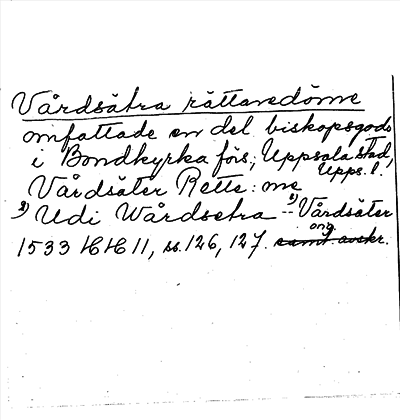 Vårdsätra rättaredöme
omfattade en del biskopsgods
i Bondkyrka förs., Uppsala stad,
Upps. l.
Vårdsäter Rette: me
2) Udi Wårdsetra -- 1) Vårdsäter
1533 HH 11, ss. 126, 127. orig. samt avskr.